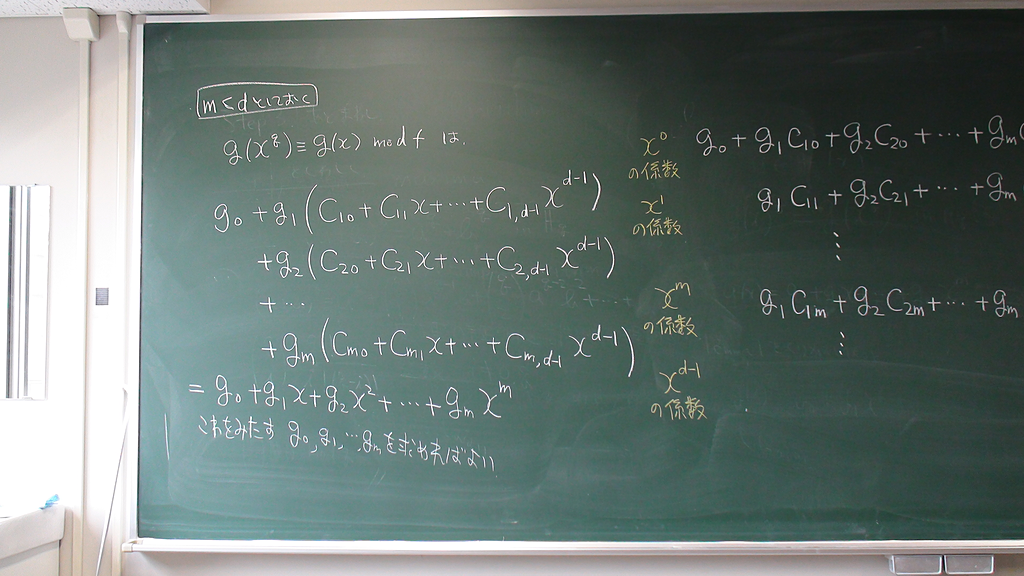 m<dとしておく
g(x^q) ≡ g(x) mod f は、
g₀ + g₁(C₁₀ + C₁₁x + ⋯ + C₁,d-1 x^{d-1})
+ g₂(C₂₀ + C₂₁x + ⋯ + C₂,d-1 x^{d-1})
+ ⋯
+ gₘ(Cₘ₀ + Cₘ₁x + ⋯ + Cₘ,d-1 x^{d-1})
= g₀ + g₁x + g₂x² + ⋯ + gₘx^m
これをみたす g₀, g₁, ⋯, gₘを求めればよい
x⁰ の係数 g₀ + g₁C₁₀ + g₂C₂₀ + ⋯ + gₘ
x¹ の係数 g₁C₁₁ + g₂C₂₁ + ⋯ + gₘ
⋮
x^m の係数 g₁C₁ₘ + g₂C₂ₘ + ⋯ + gₘ
⋮
x^{d-1} の係数